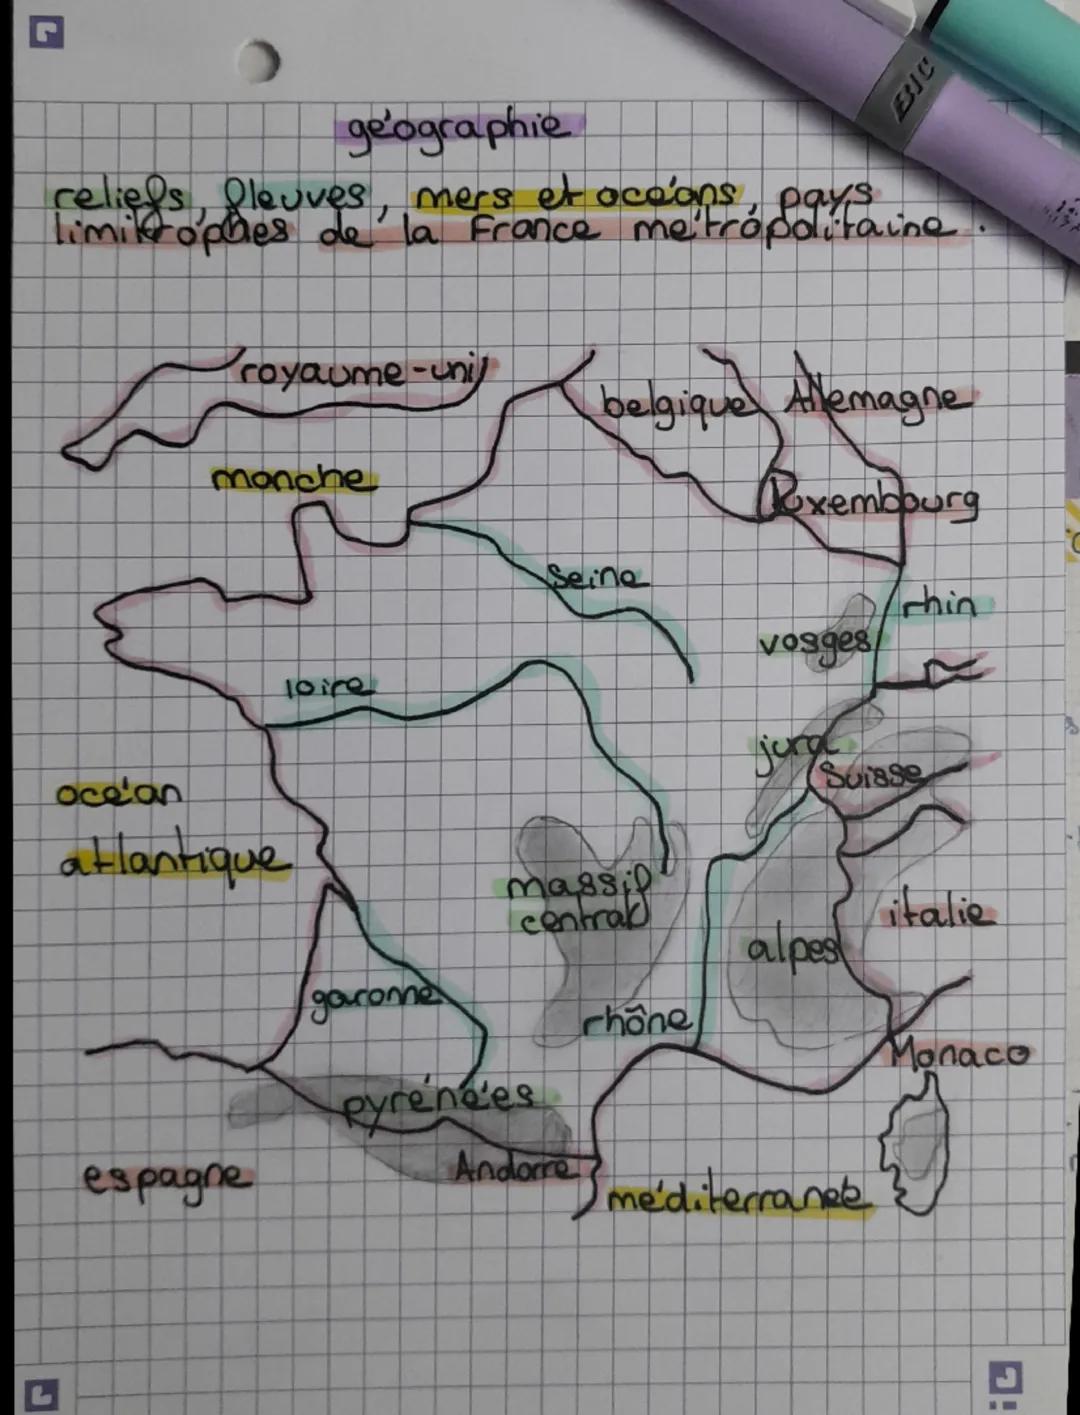 géographie
reliefs, fleuves, mers et océans, pays
limitrophes de la France métropolitaine.
BIC
royaume-uni
belgique
Allemagne
manche
Luxembourg
seine
rhin
vosges
loire
jura
Suisse
océan
atlantique
massif
central
italie
alpes
garonne
rhône
Monaco
pyrénées
Andorre
espagne
méditerranée